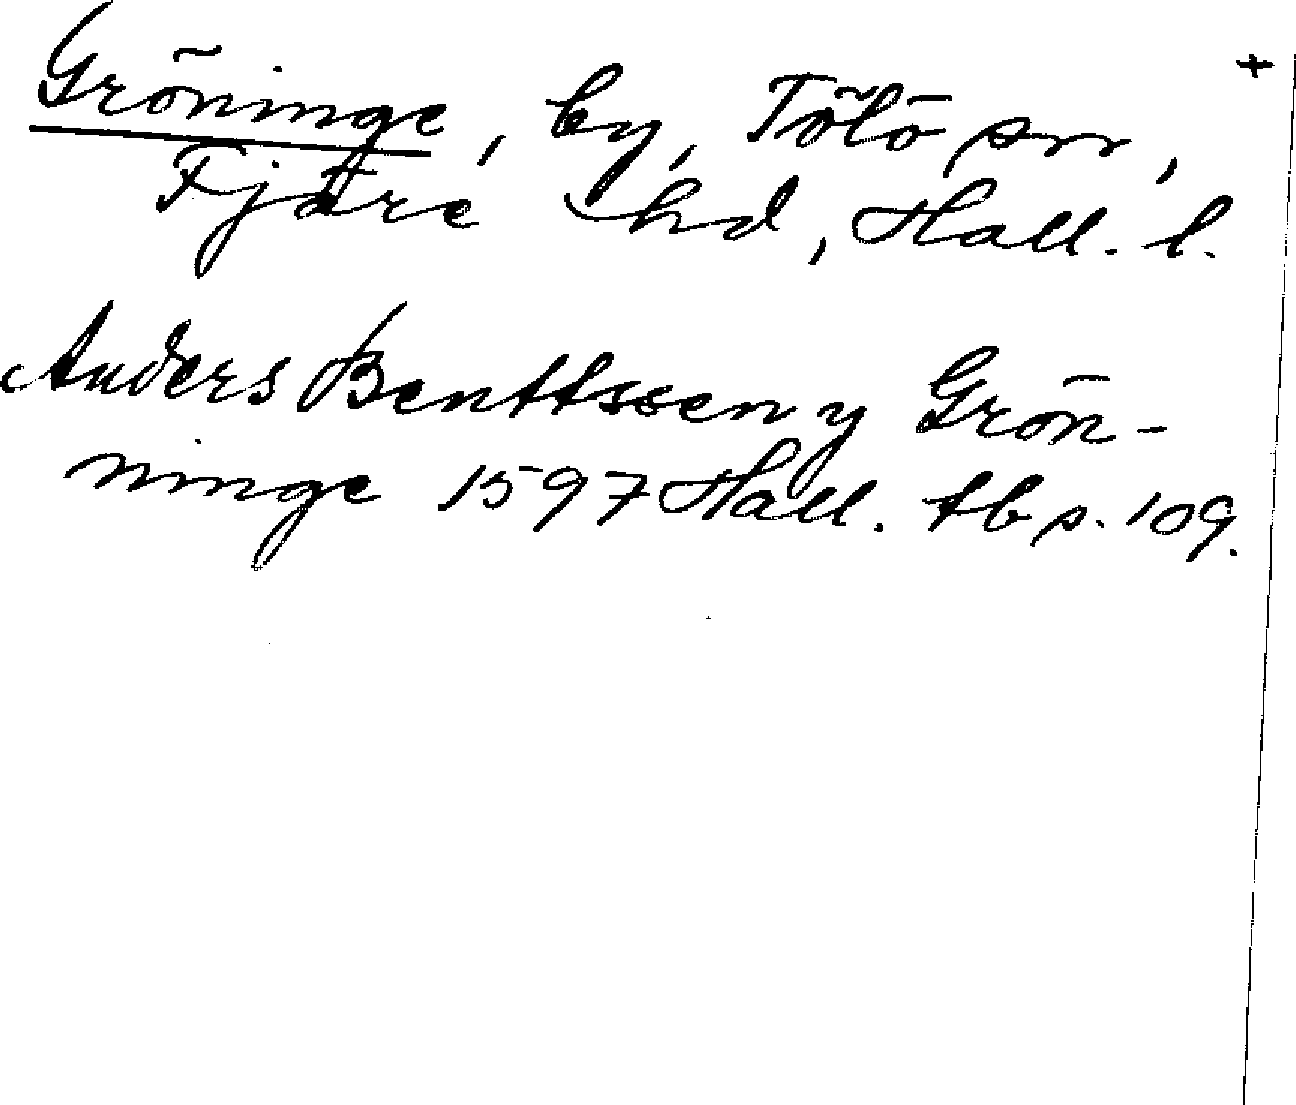 Gröninge, by, Tölö sn, +
Fjäre hd, Hall. l.
Anders Benttssen y Grön-
ninge 1597 Hall. tb s. 109.